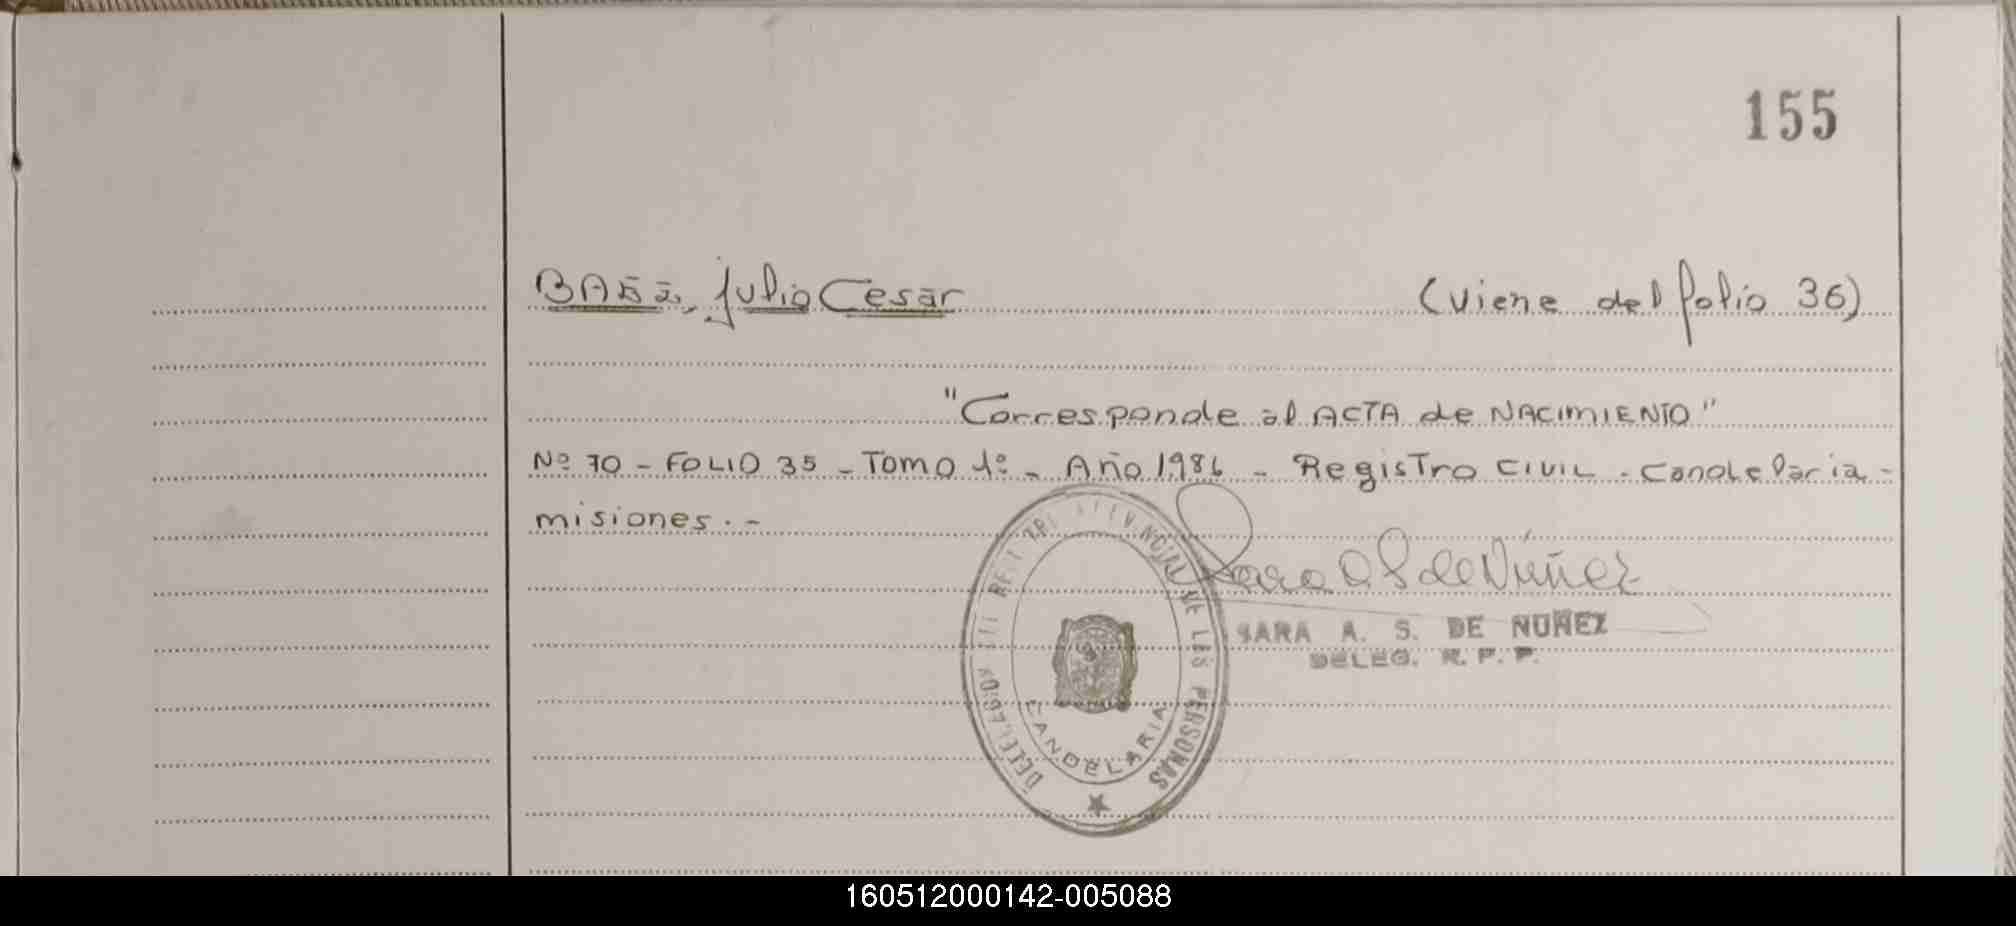 155
BAEZ, Julio Cesar (viene del folio 36)
"Corresponde al ACTA de NACIMIENTO"
Nº 70 - FOLIO 35 - Tomo 1º - Año 1986 - Registro CIVIL - Candelaria -
misiones. -
Sara A. S. de Núñez
SARA A. S. DE NUÑEZ
DELEG. R. P. P.
DE LAS PERSONAS
CANDELARIA
160512000142-005088